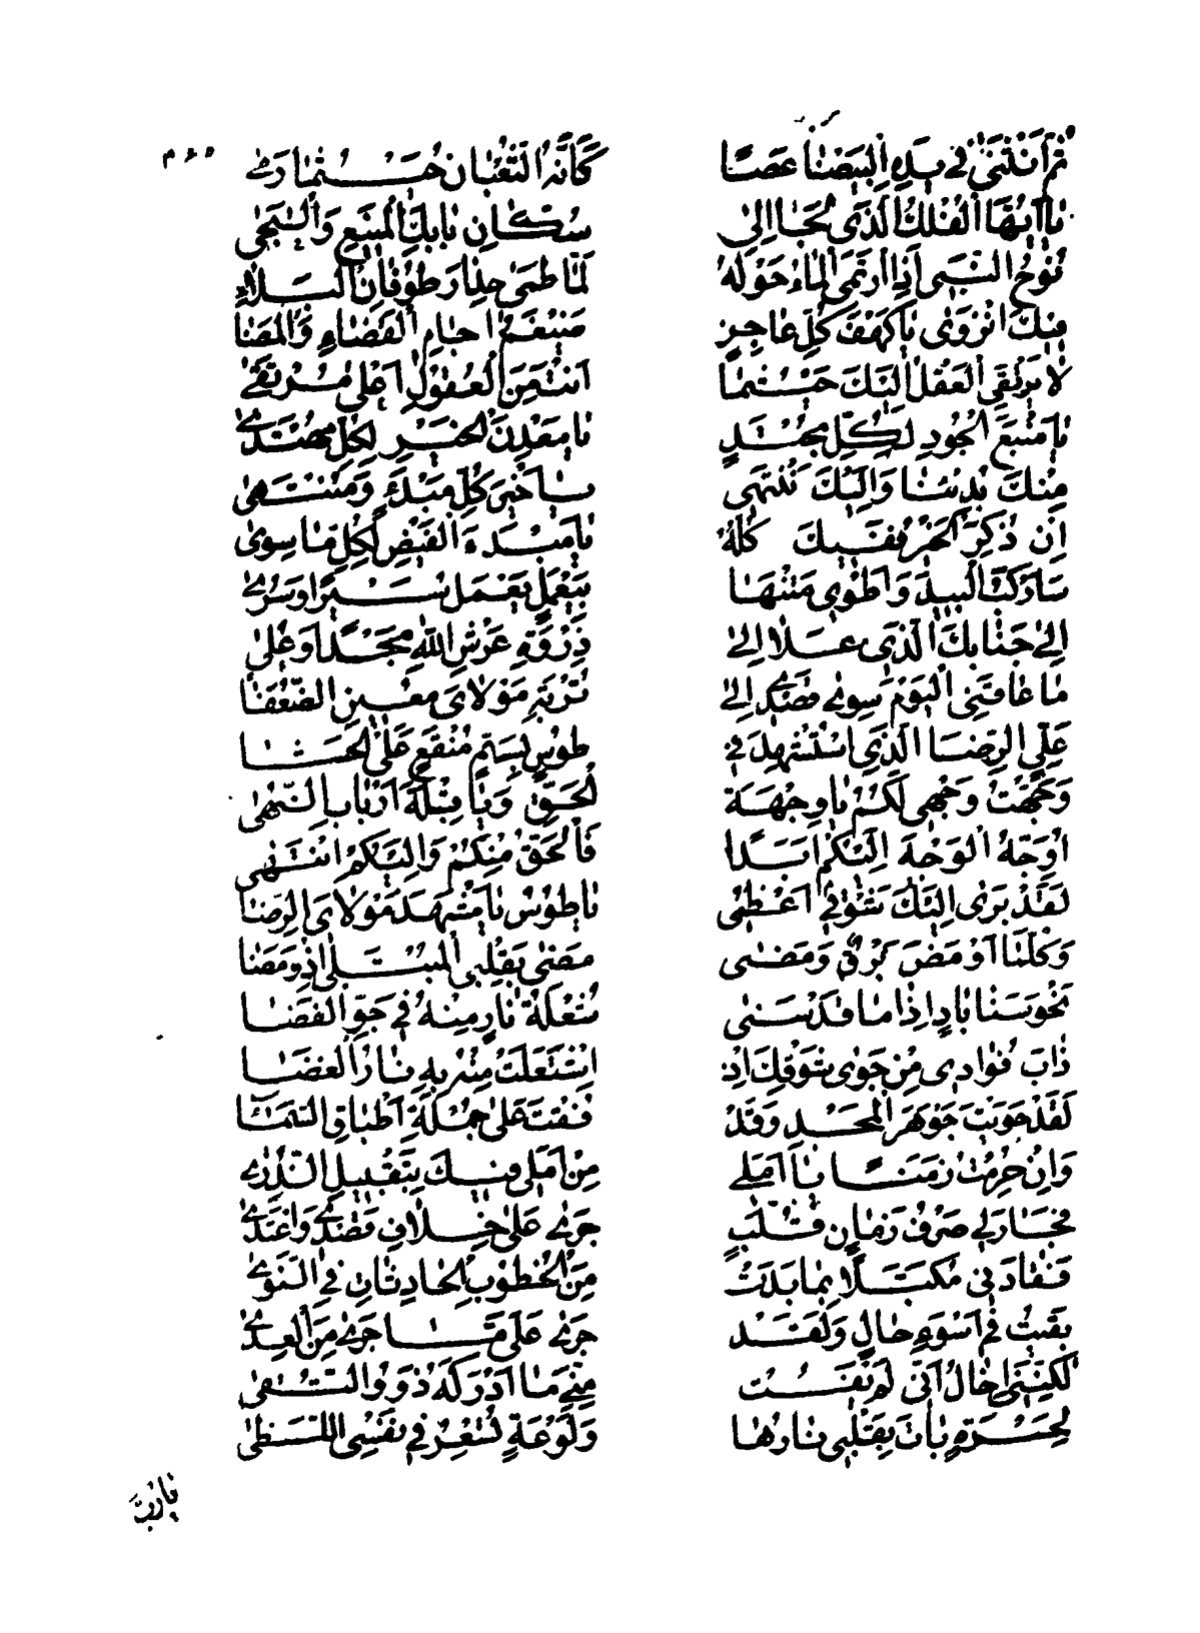 ثُمَّ انْثَنَى فِي يَدِهِ الْبَيْضَاءِ عَصًا كَأَنَّهُ الثُّعْبَانُ حَيْثُمَا رَمَى
يَا أَيُّهَا الْفُلْكُ الَّذِي نَجَا إِلَى سُكَّانِ بَابِكَ الْمَنِيعِ وَالْتَجَى
نُوحُ النَّبِي إِذَا ارْتَمَى الْمَاءُ حَوْلَهُ لَمَّا طَمَى حِذَارَ طُوفَانِ الْبَلَاءِ
فِيكَ انْزَوَى يَا كَهْفَ كُلِّ عَاجِزٍ الْقَضَاءِ وَالْمَضَا
لَا يَرْتَقِي الْعَقْلُ إِلَيْكَ حَيْثُمَا أَنْتَ مِنَ الْعُقُولِ أَعْلَى مُرْتَقَى
يَا مَنْبَعَ الْجُودِ لِكُلِّ مُجْتَدٍ يَا مَعْدِنَ الْخَيْرِ لِكُلِّ مُهْتَدَى
مِنْكَ بُدِئْنَا وَإِلَيْكَ نَنْتَهِي يَا خَيْرَ كُلِّ مَبْدَءٍ وَمُنْتَهَى
إِنْ ذُكِرَ الْخَيْرُ فَفِيكَ كُلُّهُ يَا مَبْدَءَ الْفَيْضِ لِكُلِّ مَا سِوَى
سَأَرْكَبُ الْبِيدَ وَأَطْوِي مَتْنَهَا بِيَعْمَلٍ يَعْمَلُ سَيْرًا وَسُرَى
إِلَى جَنَابِكَ الَّذِي عَلَا إِلَى ذِرْوَةِ عَرْشِ اللّٰهِ مَجْدًا وَعُلَى
مَا عَاقَنِي الْيَوْمَ سِوَى قَصْدِي إِلَى تُرْبَةِ مَوْلَايَ مُعِينِ الضُّعَفَا
عَلِيٍّ الرِّضَا الَّذِي اسْتُشْهِدَ فِي طُوسٍ بِسَمٍّ مُنْقَعٍ عَلَى الْحَشَا
وَجَّهْتُ وَجْهِي لَكُمْ يَا وِجْهَةَ الْحَقِّ وَيَا قِبْلَةَ أَرْبَابِ النُّهَى
أُوَجِّهُ الْوَجْهَ إِلَيْكُمْ أَبَدًا فَالْحَقُّ مِنْكُمْ وَإِلَيْكُمُ انْتَهَى
لَقَدْ بَرَى إِلَيْكَ شَوْقِي أَعْظُمِي يَا طُوسُ يَا مَشْهَدَ مَوْلَايَ الرِّضَا
وَكُلَّمَا أَوْمَضَ بَرْقٌ وَمَضَى مَضَى بِقَلْبِي الْمُبْتَلَى إِذْ وَمَضَا
بَادٍ إِذَا مَا قَدْ سَنَى شُعْلَةُ نَارٍ مِنْهُ فِي جَوِّ الْفَضَا
ذَابَ فُؤَادِي مِنْ جَوَى شَوْقِكَ إِذْ اشْتَعَلَتْ مِنْهُ بِهِ نَارُ الْغَضَا
لَقَدْ حَوَيْتَ جَوْهَرَ الْمَجْدِ وَقَدْ فُقْتَ عَلَى جُمْلَةِ أَطْبَاقِ السَّمَا
وَإِنْ حُرِمْتُ زَمَنًا يَا أَمَلِي مِنْ أَمَلِي فِيكَ بِتَقْبِيلِ الثَّرَى
فَجَارَ لِي صَرْفُ زَمَانٍ قُلَّبٍ جَرَى عَلَى خِلَافِ قَصْدِي وَاعْتَدَى
فَقَادَنِي مُكَبَّلًا بِمَا بَدَتْ مِنَ الْخُطُوبِ الْحَادِثَاتِ فِي النَّوَى
بَقِيتُ فِي أَسْوَءِ حَالٍ وَلَقَدْ جَرَى عَلَيَّ مَا جَرَى مِنَ الْعِدَى
لٰكِنَّنِي إِخَالُ أَنِّي لَمْ مِنِّي مَا أَدْرَكَهُ ذَوُو التُّقَى
لِحَسْرَةٍ بَاتَ بِقَلْبِي نَارُهَا وَلَوْعَةٍ تُسْعِرُ فِي نَفْسِي اللَّظَى
يَا رَبِّ